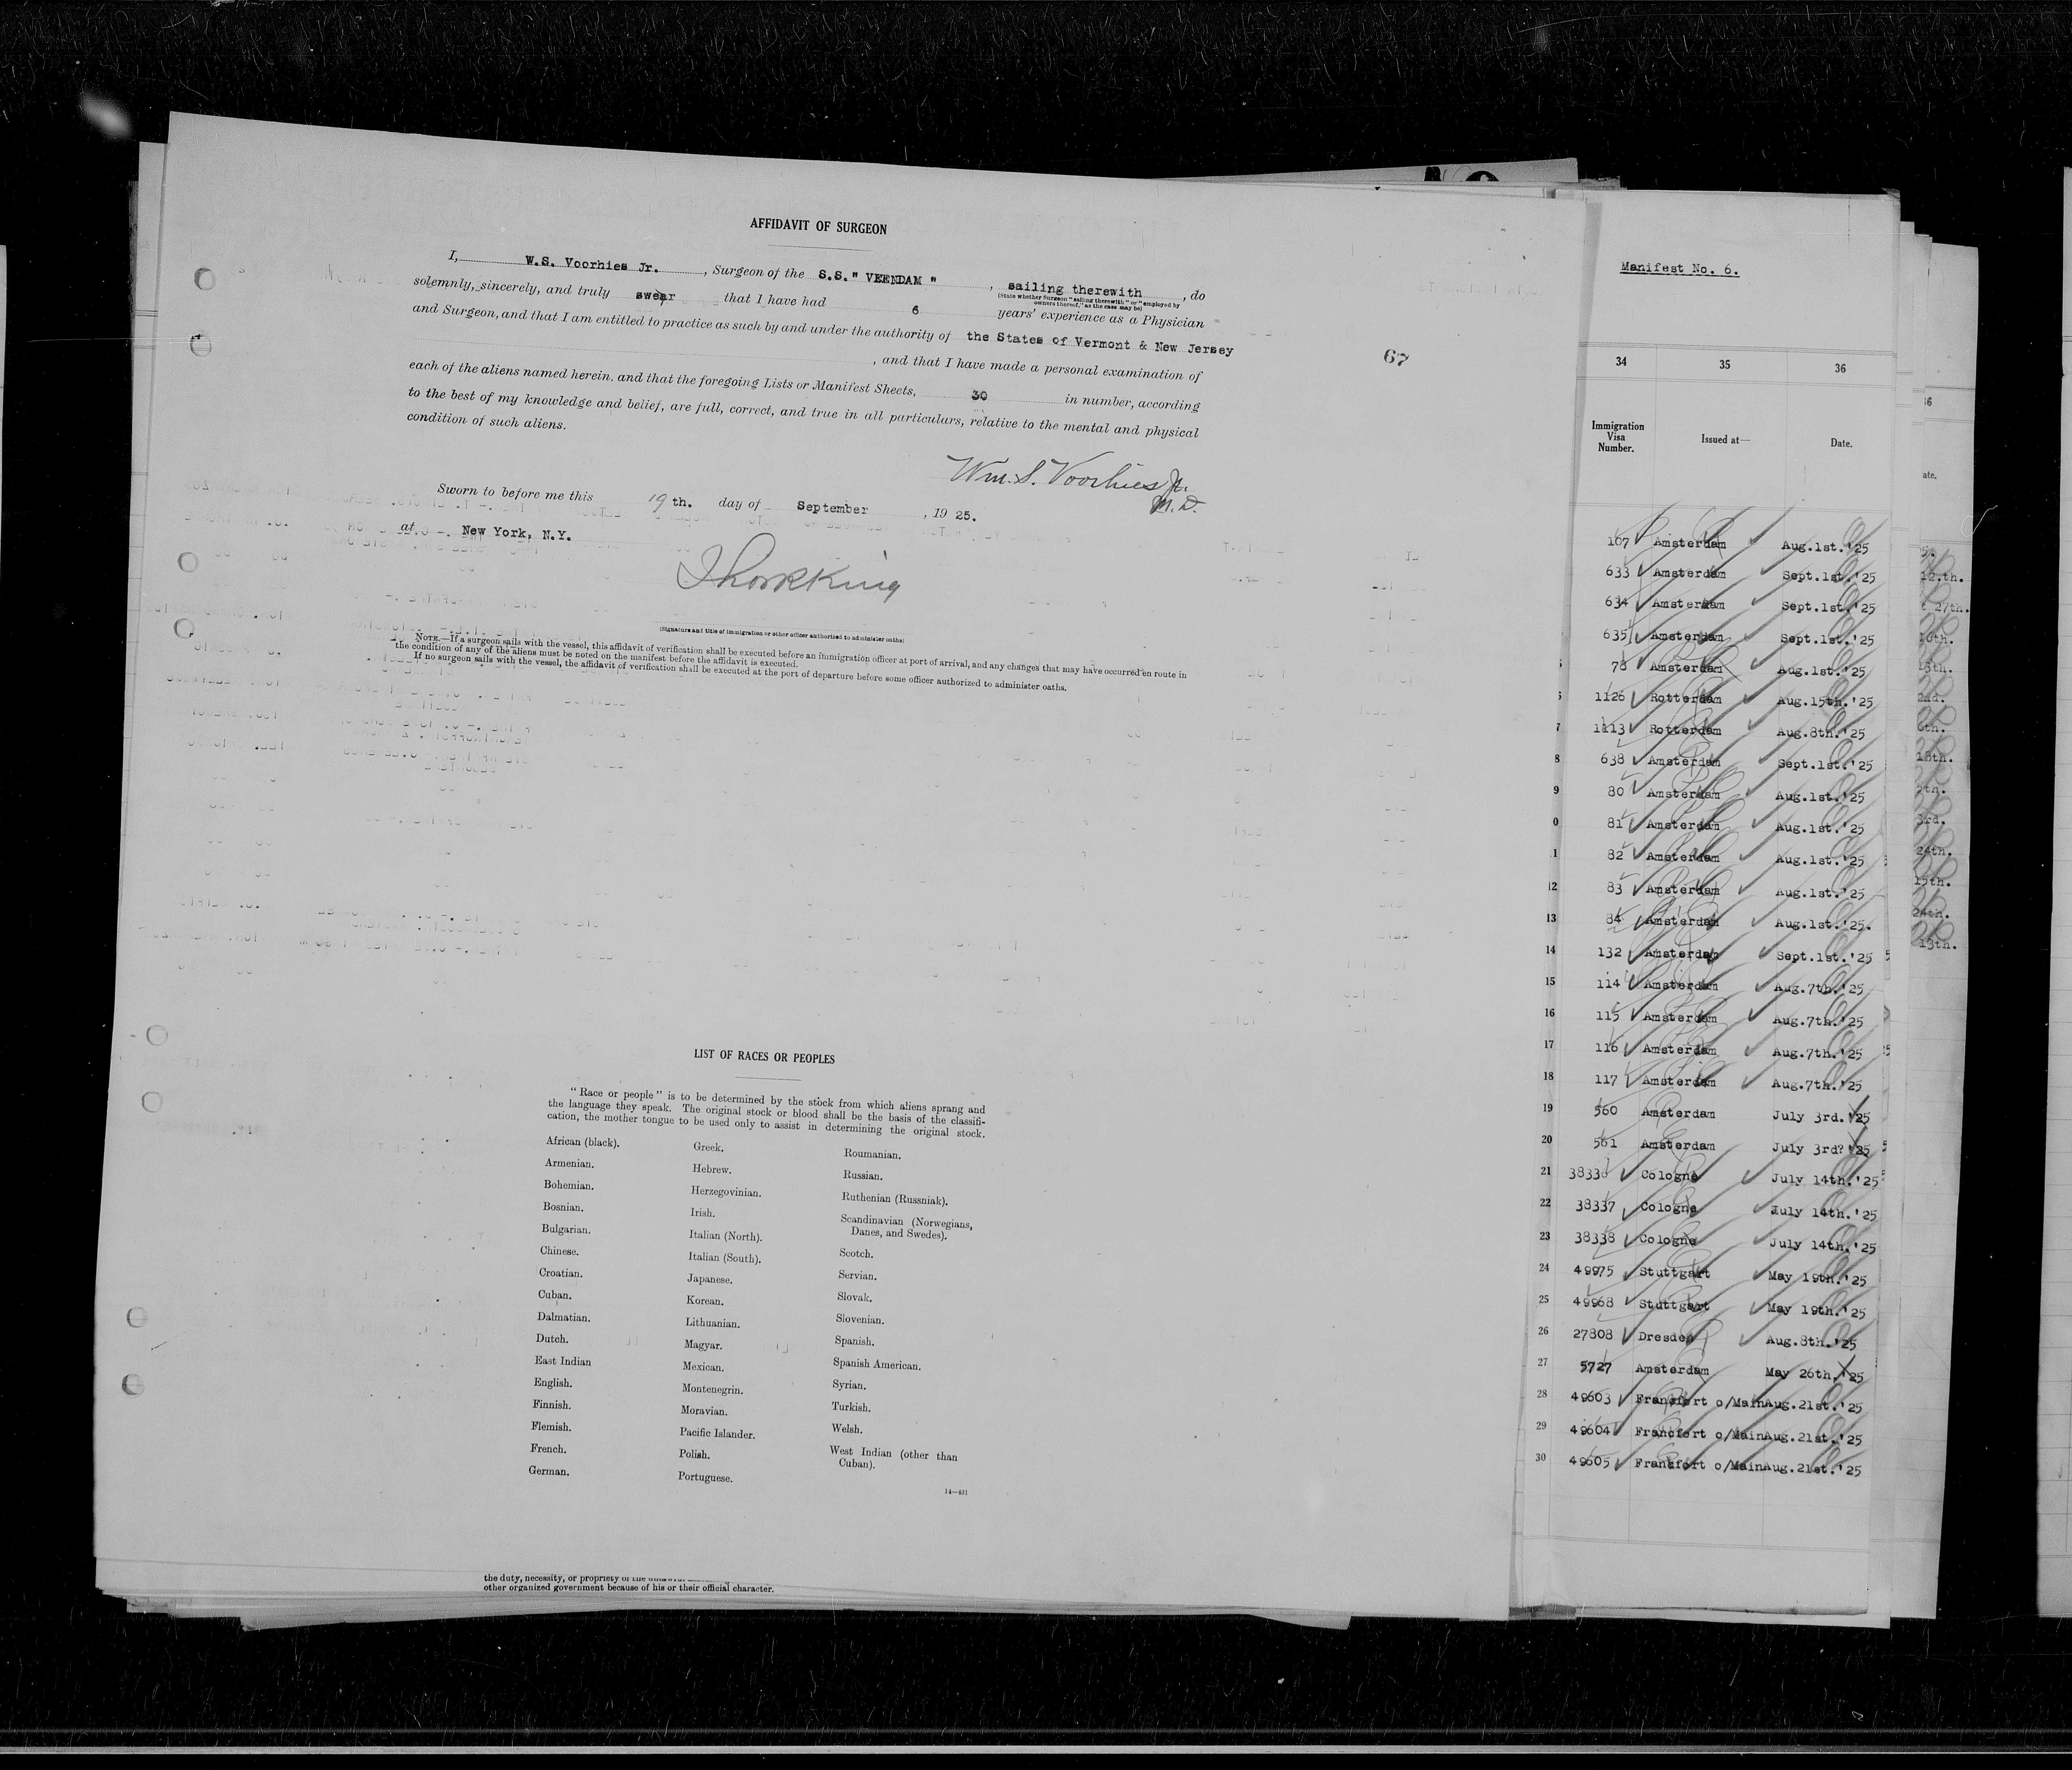 AFFIDAVIT OF SURGEON
I, W.S. Voorhies Jr. , Surgeon of the S.S." VEENDAM " , sailing therewith , do
(State whether Surgeon "sailing therewith" or "employed by
owners thereof," as the case may be)
solemnly, sincerely, and truly swear that I have had 6 years' experience as a Physician
and Surgeon, and that I am entitled to practice as such by and under the authority of the States of Vermont & New Jersey
, and that I have made a personal examination of
each of the aliens named herein. and that the foregoing Lists or Manifest Sheets, 30 in number, according
to the best of my knowledge and belief, are full, correct, and true in all particulars, relative to the mental and physical
condition of such aliens.
Wm. S. Voorhies Jr.
M.D.
Sworn to before me this 19th. day of September , 19 25.
at New York, N.Y.
(Signature and title of immigration or other officer authorized to administer oaths)
NOTE.—If a surgeon sails with the vessel, this affidavit of verification shall be executed before an immigration officer at port of arrival, and any changes that may have occurred en route in
the condition of any of the aliens must be noted on the manifest before the affidavit is executed.
If no surgeon sails with the vessel, the affidavit of verification shall be executed at the port of departure before some officer authorized to administer oaths.
67
LIST OF RACES OR PEOPLES
"Race or people" is to be determined by the stock from which aliens sprang and
the language they speak. The original stock or blood shall be the basis of the classifi-
cation, the mother tongue to be used only to assist in determining the original stock.
African (black).
Armenian.
Bohemian.
Bosnian.
Bulgarian.
Chinese.
Croatian.
Cuban.
Dalmatian.
Dutch.
East Indian
English.
Finnish.
Flemish.
French.
German.
Greek.
Hebrew.
Herzegovinian.
Irish.
Italian (North).
Italian (South).
Japanese.
Korean.
Lithuanian.
Magyar.
Mexican.
Montenegrin.
Moravian.
Pacific Islander.
Polish.
Portuguese.
Roumanian.
Russian.
Ruthenian (Russniak).
Scandinavian (Norwegians,
Danes, and Swedes).
Scotch.
Servian.
Slovak.
Slovenian.
Spanish.
Spanish American.
Syrian.
Turkish.
Welsh.
West Indian (other than
Cuban).
14—431
the duty, necessity, or propriety of the
other organized government because of his or their official character.
Manifest No. 6.
34 35 36
Immigration
Visa
Number.
Issued at—
Date.
167 Amsterdam Aug.1st.'25
633 Amsterdam Sept.1st.'25
634 Amsterdam Sept.1st.'25
635 Amsterdam Sept.1st.'25
78 Amsterdam Aug.1st.'25
1126 Rotterdam Aug.15th.'25
7 1113 Rotterdam Aug.8th.'25
8 638 Amsterdam Sept.1st.'25
9 80 Amsterdam Aug.1st.'25
0 81 Amsterdam Aug.1st.'25
11 82 Amsterdam Aug.1st.'25
12 83 Amsterdam Aug.1st.'25
13 84 Amsterdam Aug.1st.'25.
14 132 Amsterdam Sept.1st.'25
15 114 Amsterdam Aug.7th.'25
16 115 Amsterdam Aug.7th.'25
17 116 Amsterdam Aug.7th.'25
18 117 Amsterdam Aug.7th.'25
19 560 Amsterdam July 3rd.'25
20 561 Amsterdam July 3rd?'25
21 38336 Cologne July 14th.'25
22 38337 Cologne July 14th.'25
23 38338 Cologne July 14th.'25
24 49975 Stuttgart May 19th.'25
25 49968 Stuttgart May 19th.'25
26 27808 Dresden Aug.8th.'25
27 5727 Amsterdam May 26th.'25
28 49603 Francfort o/Main Aug.21st.'25
29 49604 Francfort o/Main Aug.21st.'25
30 49605 Frankfort o/Main Aug.21st.'25
36
ate.
12.th.
27th.
18th.
2nd.
6th.
18th.
7th.
3rd.
24th.
15th.
24th.
13th.